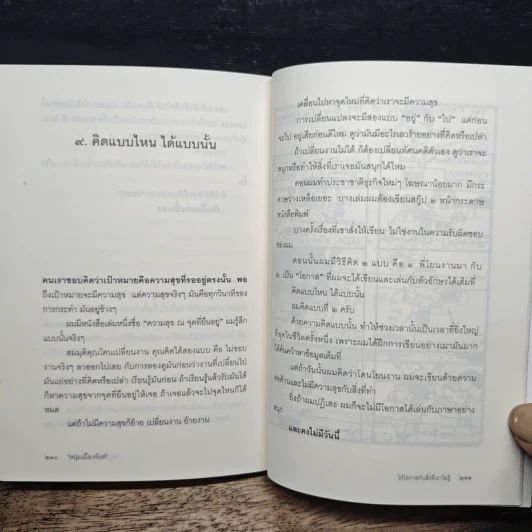 ๙. คิดแบบไหน ได้แบบนั้น
คนเราชอบคิดว่าเป้าหมายคือความสุขที่รออยู่ตรงนั้น พอ
ถึงเป้าหมายจะมีความสุข แต่ความสุขจริงๆ มันคือทุกวินาทีของ
การกระทำ มันอยู่ข้างๆ
ผมมีหนังสือเล่มหนึ่งชื่อ "ความสุข ณ จุดที่ยืนอยู่" ผมรู้สึก
แบบนั้นจริงๆ
สมมุติคุณโดนเปลี่ยนงาน คุณคิดได้สองแบบ คือ ไม่ชอบ
งานจริงๆ ลาออกไปเลย กับการลองดูมันก่อนว่างานที่เปลี่ยนไป
มันแย่อย่างที่คิดหรือเปล่า เรียนรู้มันก่อน ถ้าเรียนรู้แล้วรับมันได้
ก็หาความสุขจากจุดที่ยืนอยู่ให้เจอ ถ้าเจอแล้วจะไปจุดไหนก็ได้
หมด
แต่ถ้าไม่มีความสุขก็ย้าย เปลี่ยนงาน ย้ายงาน
๒๑๐ "หนุ่มเมืองจันท์"
เคลื่อนไปหาจุดใหม่ที่คิดว่าเราจะมีความสุข
การเปลี่ยนแปลงจะมีสองแบบ "อยู่" กับ "ไป" แต่ก่อน
จะไป อยู่เสียก่อนดีไหม ดูว่ามันมีอะไรเลวร้ายอย่างที่คิดหรือเปล่า
ถ้าเปลี่ยนงานไม่ได้ ก็ต้องเปลี่ยนทัศนคติตัวเอง ดูว่าเราจะ
สนุกหรือทำให้สิ่งที่เราเจอมันสนุกได้ไหม
ตอนผมทำประชาชาติธุรกิจใหม่ๆ โฆษณาน้อยมาก มีกระ
ดาษว่างเหลือเยอะ บางเล่มผมต้องเขียนสกู๊ป ๒ หน้ากระดาษ
หนังสือพิมพ์
บางครั้งเรื่องที่เขาสั่งให้เขียน ไม่ใช่งานในความรับผิดชอบ
ของผม
ตอนนั้นผมมีวิธีคิด ๒ แบบ คือ ๑. พี่โยนงานมา กับ
๒. เป็น "โอกาส" ที่ผมจะได้เขียนและเล่นกับตัวอักษรได้เต็มที่
คิดแบบไหน ได้แบบนั้น
ผมคิดแบบที่ ๒ ครับ
ด้วยความคิดแบบนั้น ทำให้ช่วงเวลานั้นเป็นเวลาที่ยิ่งใหญ่
ที่สุดในชีวิตครั้งหนึ่ง เพราะผมได้ฝึกการเขียนอย่างเมามันมาก
ได้ค้นคว้าหาข้อมูลเต็มที่
แต่ถ้าวันนั้นผมคิดว่าโดนโยนงาน ผมจะเขียนด้วยความ
ต่อต้านและไม่มีความสุขกับสิ่งที่ทำ
ยิ่งผมปฏิเสธ ผมก็จะไม่มีโอกาสได้เล่นกับภาษาอย่าง
สนุก
และคงไม่มีวันนี้
ให้โอกาสกับสิ่งที่เราไม่รู้ ๒๑๑